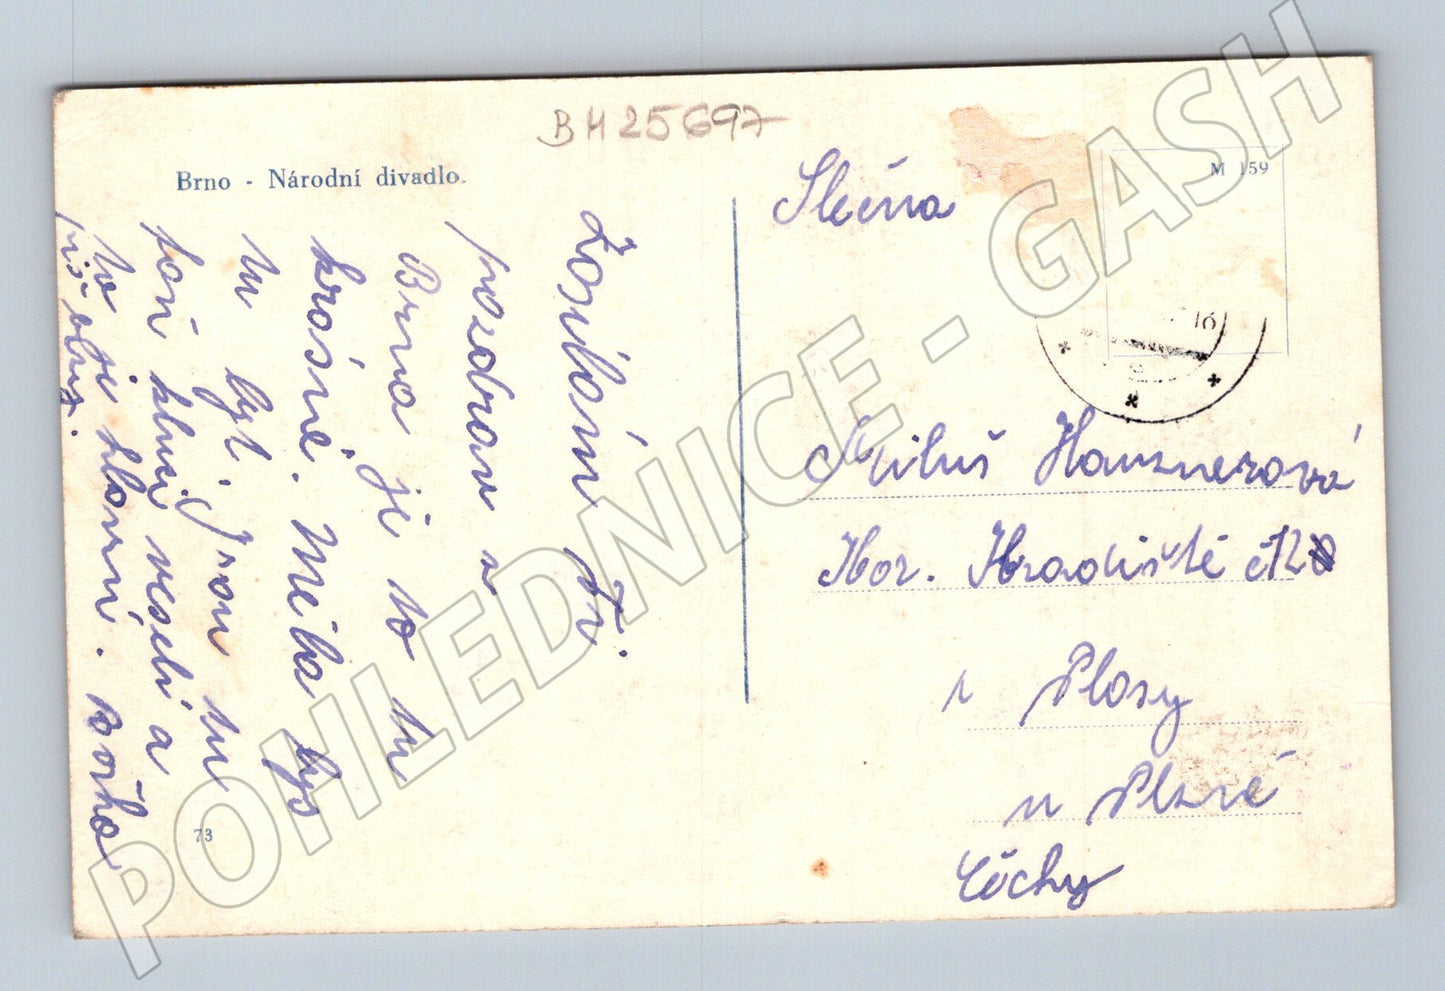 BH25697
Brno - Národní divadlo.
M 159
16
Slečna
Miluš Hausnerová
Hor. Hradiště č120
p. Plasy
u Plzně
Čechy
Zasílám Ti
pozdrav z
Brna je to tu
krásné. Měla bys
tu byt. Jsou tu
fajn kluci veselí a
to se
73
POHLEDNICE - GASH